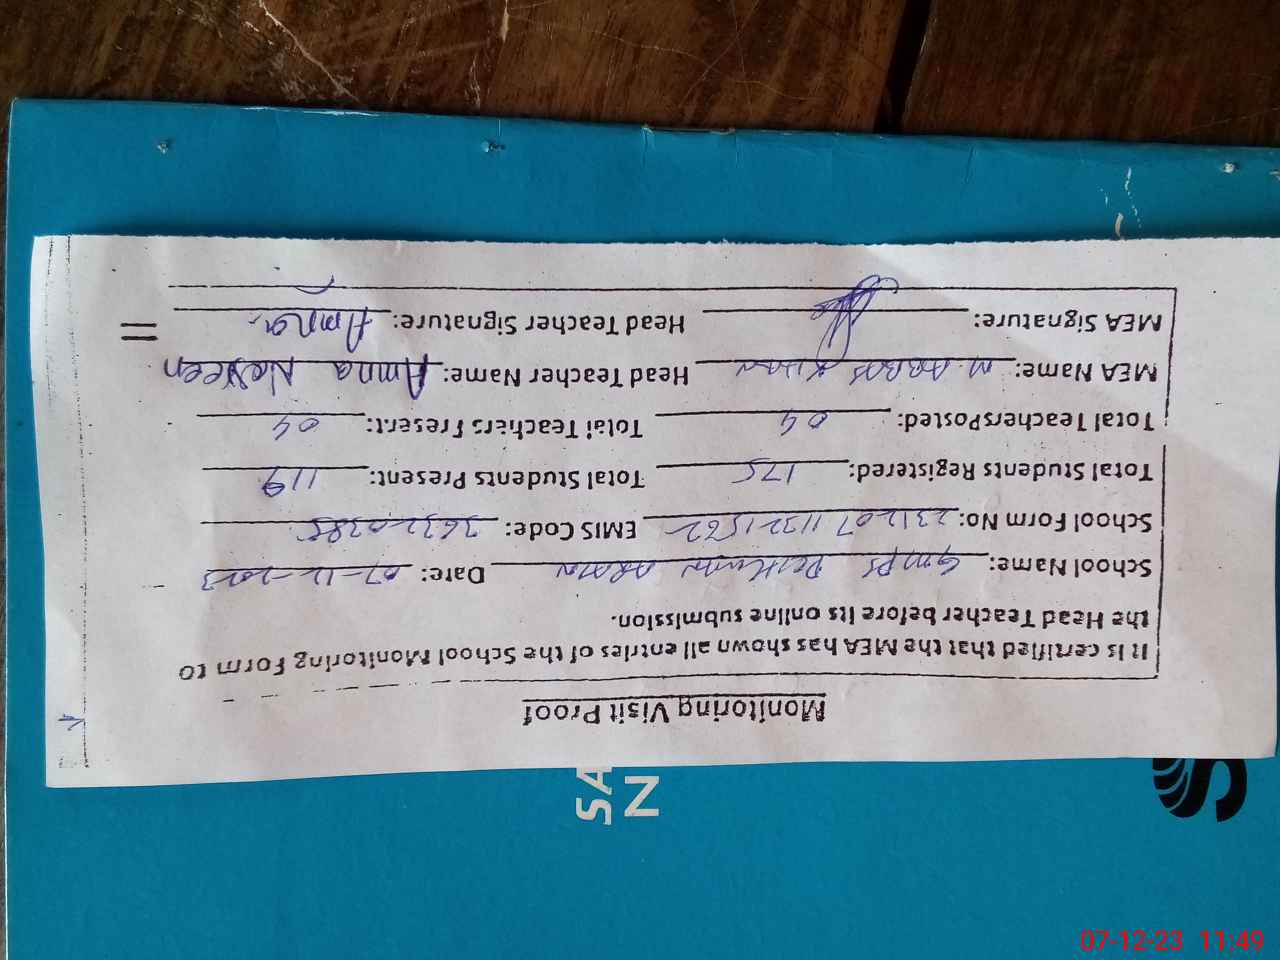 Monitoring Visit Proof
It is certified that the MEA has shown all entries of the School Monitoring Form to
the Head Teacher before its online submission.
School Name: GMPS ARAIN Date: 07-12-2023
School Form No: 231207113221562 EMIS Code: 36320385
Total Students Registered: 175 Total Students Present: 119
Total Teachers Posted: 04 Total Teachers Present: 04
MEA Name: M. ABBAS KHAN Head Teacher Name: Amna Nasreen
MEA Signature: Head Teacher Signature: Amna
SA
N
S
07-12-23 11:49